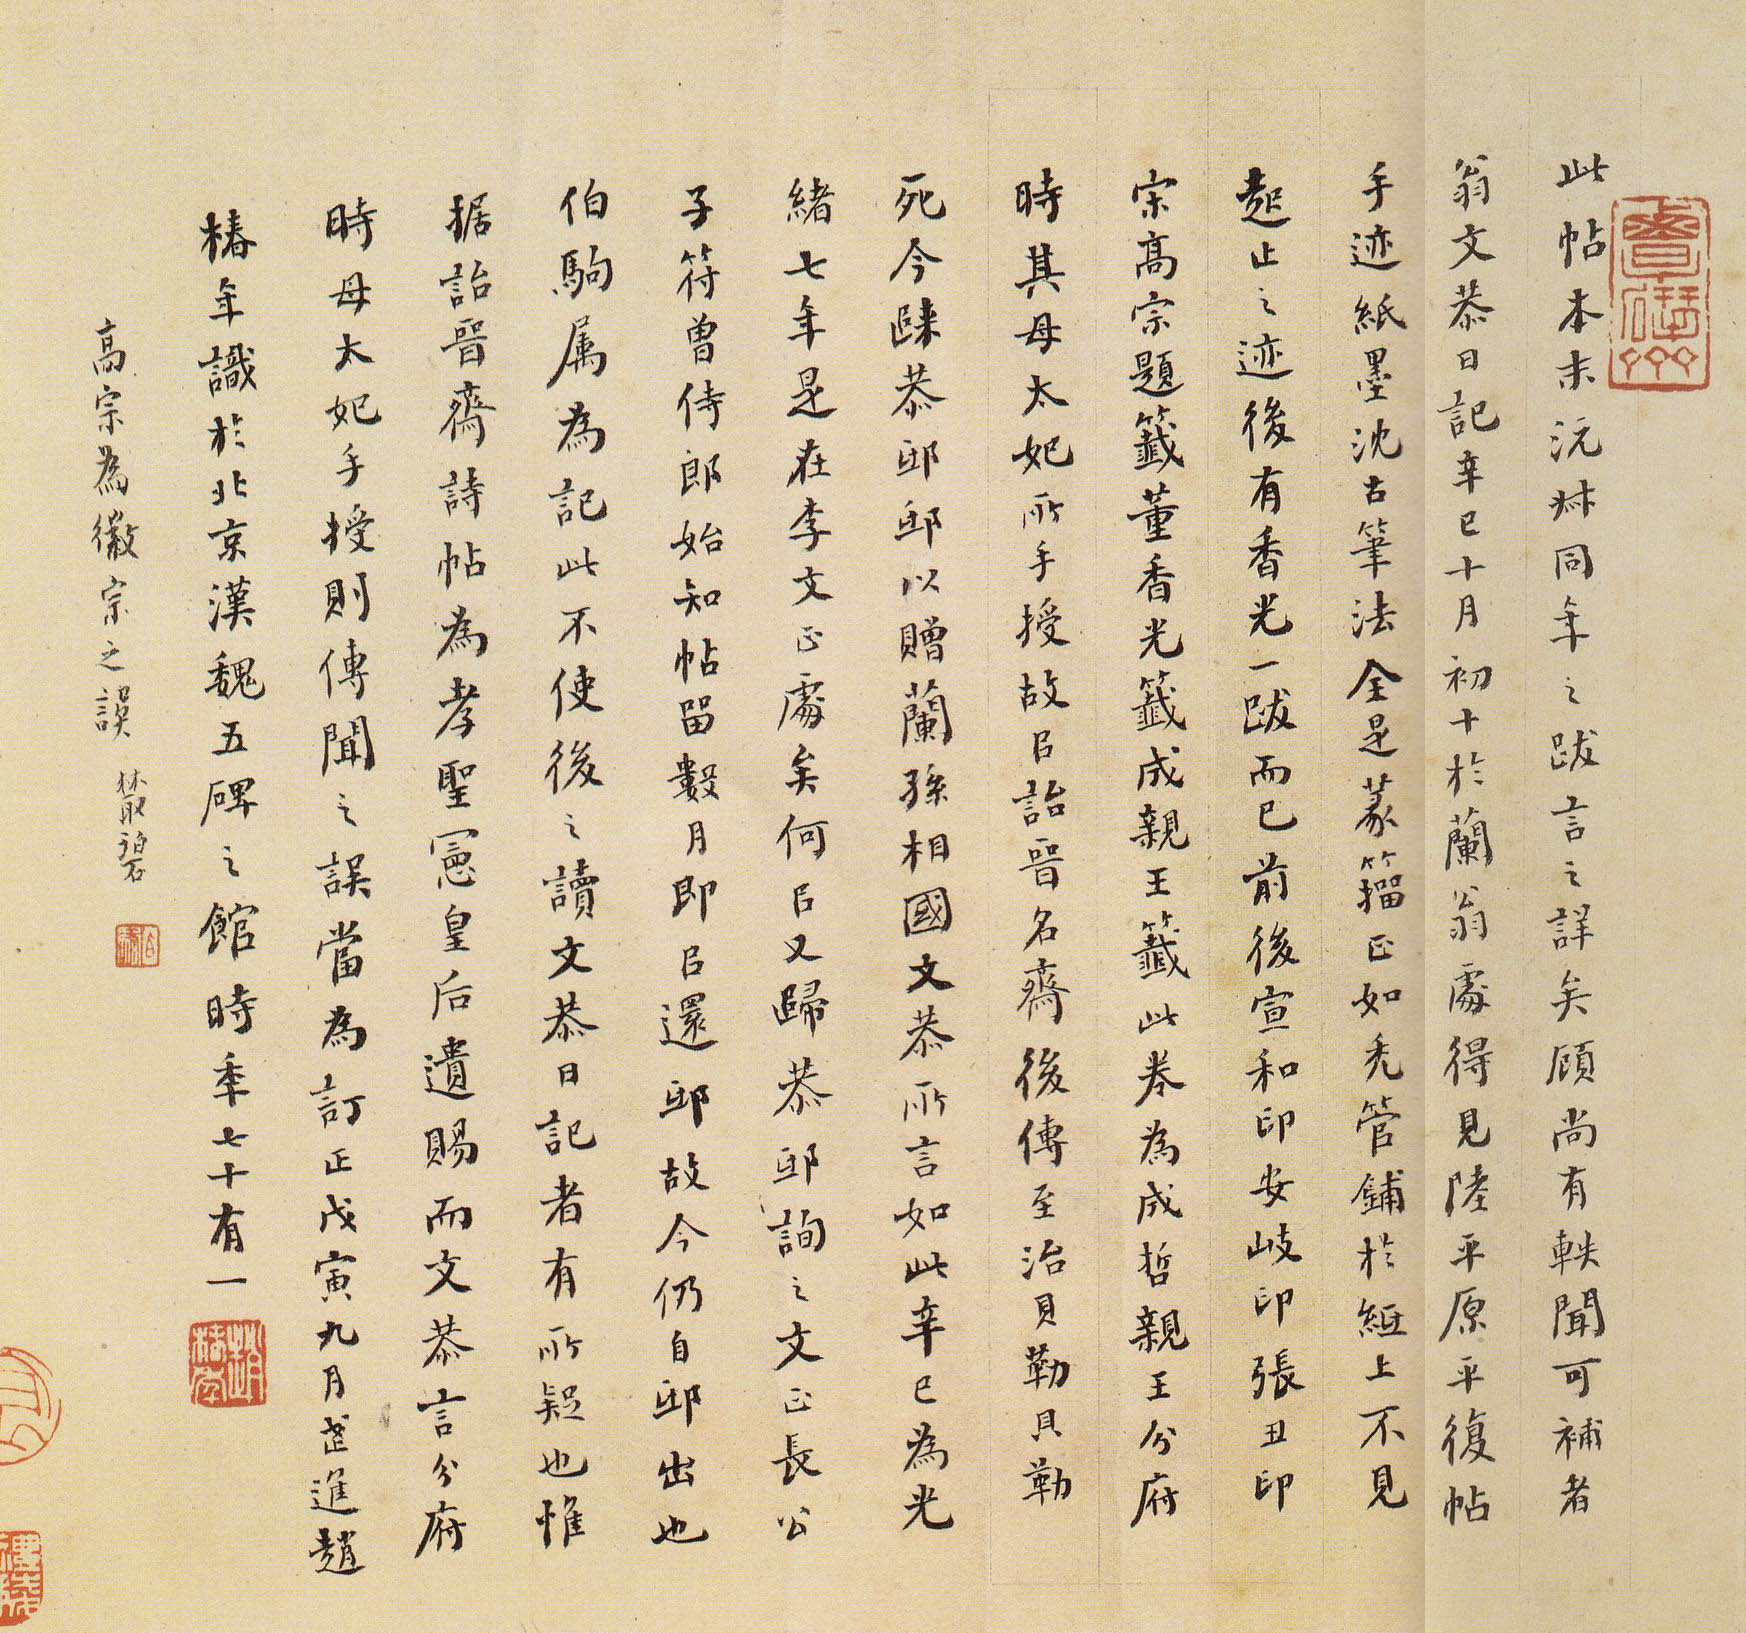 此帖本末沅叔同年之跋言之詳矣顧尚有軼聞可補者
翁文恭日記辛巳十月初十於蘭翁處得見陸平原平復帖
手迹紙墨沈古筆法全是篆籀正如禿管鋪於紙上不見
起止之迹後有香光一跋而已前後宣和印安岐印張丑印
宗高宗題籤董香光籤成親王籤此卷為成哲親王分府
時其母太妃所手授故以詒晉名齋後傳至治貝勒貝勒
死今歸恭邸邸以贈蘭孫相國文恭所言如此辛巳為光
緒七年是在李文正處矣何以又歸恭邸詢之文正長公
子符曾侍郎始知帖留數月即以還邸故今仍自邸出也
伯駒属為記此不使後之讀文恭日記者有所疑也惟
据詒晉齋詩帖為孝聖憲皇后遺賜而文恭言分府
時母太妃手授則傳聞之誤當為訂正戊寅九月武進趙
椿年識於北京漢魏五碑之館時年七十有一
高宗為徽宗之誤 叢碧
趙椿年